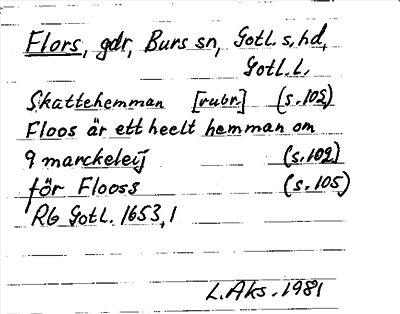 Flors, gdr, Burs sn, Gotl. s. hd,
Gotl. l.
Skattehemman [rubr.] (s. 102)
Floos är ett heelt hemman om
9 marckeleij (s. 102)
för Flooss (s. 105)
RG Gotl. 1653,1
L. Aks. 1981